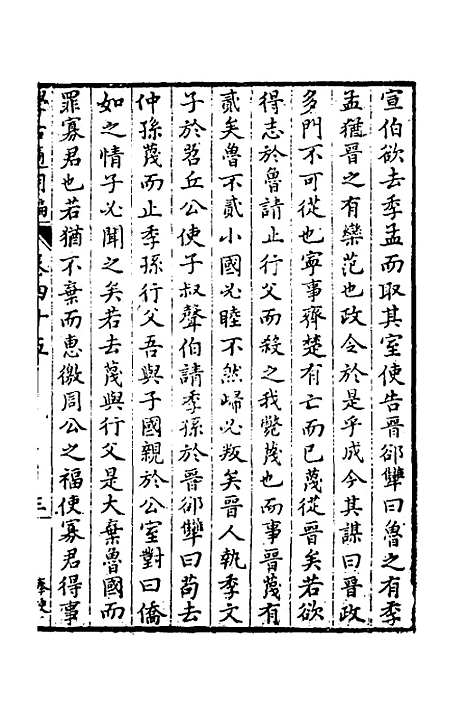 宣伯欲去季孟而取其室使告晉郤犨曰魯之有季
孟猶晉之有欒范也政令於是乎成今其謀曰晉政
多門不可從也寧事齊楚有亡而已蔑從晉矣若欲
得志於魯請止行父而殺之我斃蔑也而事晉蔑有
貳矣魯不貳小國必睦不然歸必叛矣晉人執季文
子於苕丘公使子叔聲伯請季孫於晉郤犨曰苟去
仲孫蔑而止季孫行父吾與子國親於公室對曰僑
如之情子必聞之矣若去蔑與行父是大棄魯國而
罪寡君也若猶不棄而惠徼周公之福使寡君得事
學古適用編
卷四十五
三